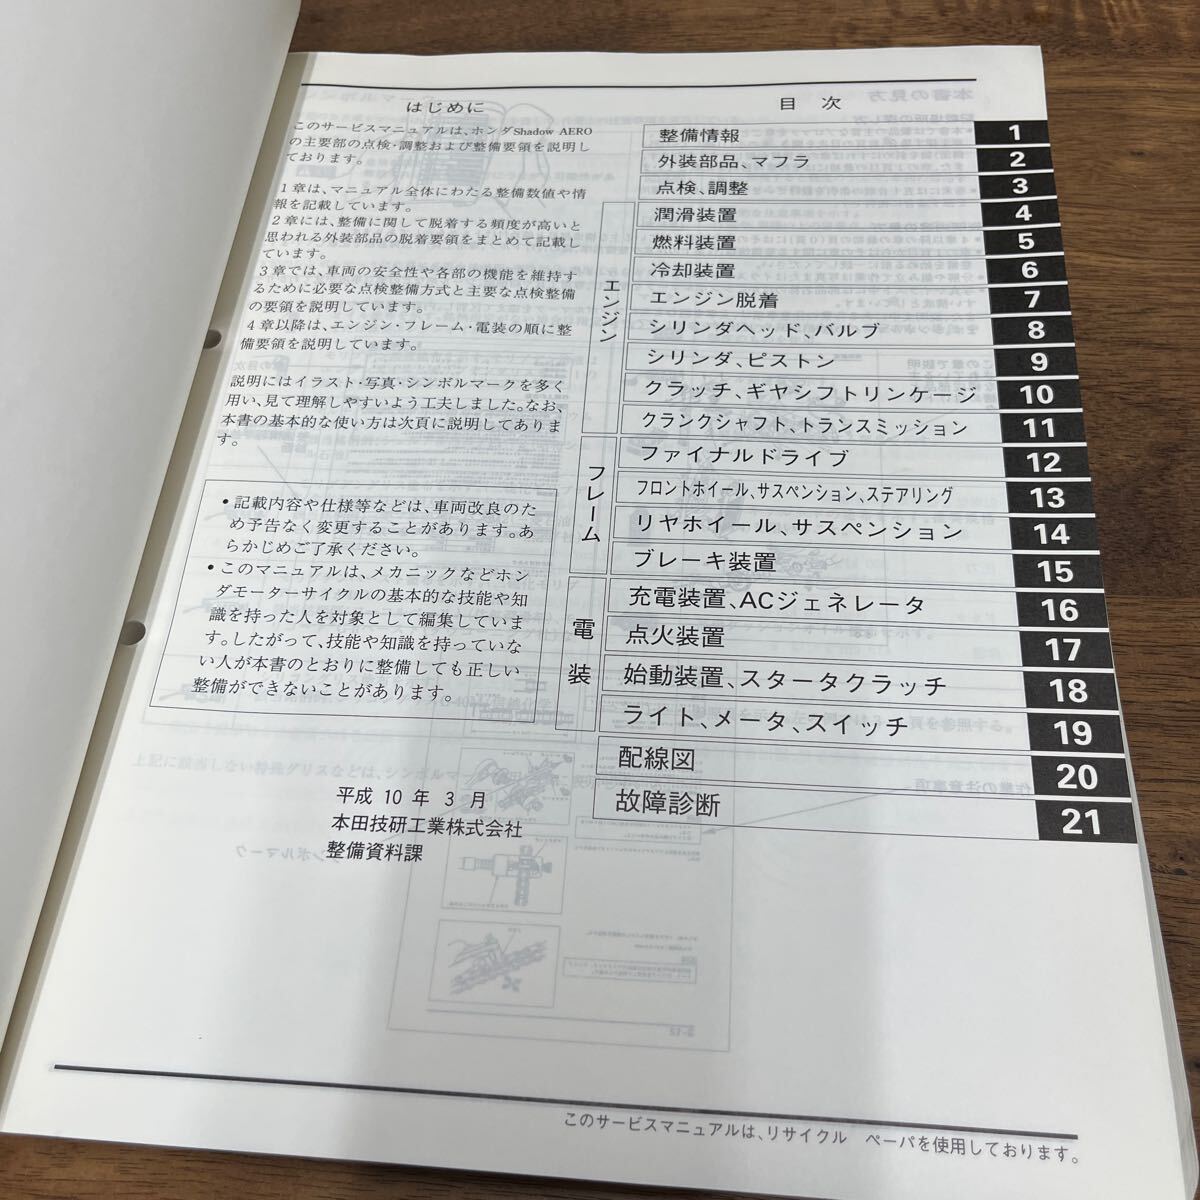 はじめに
このサービスマニュアルは、ホンダShadow AERO
の主要部の点検・調整および整備要領を説明し
ております。
1章は、マニュアル全体にわたる整備数値や情
報を記載しています。
2章には、整備に関して脱着する頻度が高いと
思われる外装部品の脱着要領をまとめて記載し
ています。
3章では、車両の安全性や各部の機能を維持す
るために必要な点検整備方式と主要な点検整備
の要領を説明しています。
4章以降は、エンジン・フレーム・電装の順に整
備要領を説明しています。
説明にはイラスト・写真・シンボルマークを多く
用い、見て理解しやすいよう工夫しました。なお、
本書の基本的な使い方は次頁に説明してありま
す。
・記載内容や仕様等などは、車両改良のた
め予告なく変更することがあります。あ
らかじめご了承ください。
・このマニュアルは、メカニックなどホン
ダモーターサイクルの基本的な技能や知
識を持った人を対象として編集していま
す。したがって、技能や知識を持っていな
い人が本書のとおりに整備しても正しい
整備ができないことがあります。
平成 10 年 3 月
本田技研工業株式会社
整備資料課
目 次
整備情報 1
外装部品、マフラ 2
点検、調整 3
エンジン
潤滑装置 4
燃料装置 5
冷却装置 6
エンジン脱着 7
シリンダヘッド、バルブ 8
シリンダ、ピストン 9
クラッチ、ギヤシフトリンケージ 10
クランクシャフト、トランスミッション 11
フレーム
ファイナルドライブ 12
フロントホイール、サスペンション、ステアリング 13
リヤホイール、サスペンション 14
ブレーキ装置 15
電装
充電装置、ACジェネレータ 16
点火装置 17
始動装置、スタータクラッチ 18
ライト、メータ、スイッチ 19
配線図 20
故障診断 21
このサービスマニュアルは、リサイクル ペーパを使用しております。